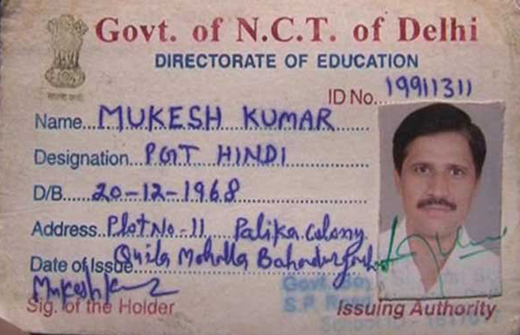 Govt. of N.C.T. of Delhi
DIRECTORATE OF EDUCATION
ID No. 19911311
Name MUKESH KUMAR
Designation PGT HINDI
D/B 20-12-1968
Address Plot No-11 Palika Colony
Date of Issue Quila Moholla Bahadurgarh
Mukesh Kumar
Govt. Boy
S.P. R
Sig. of the Holder Issuing Authority